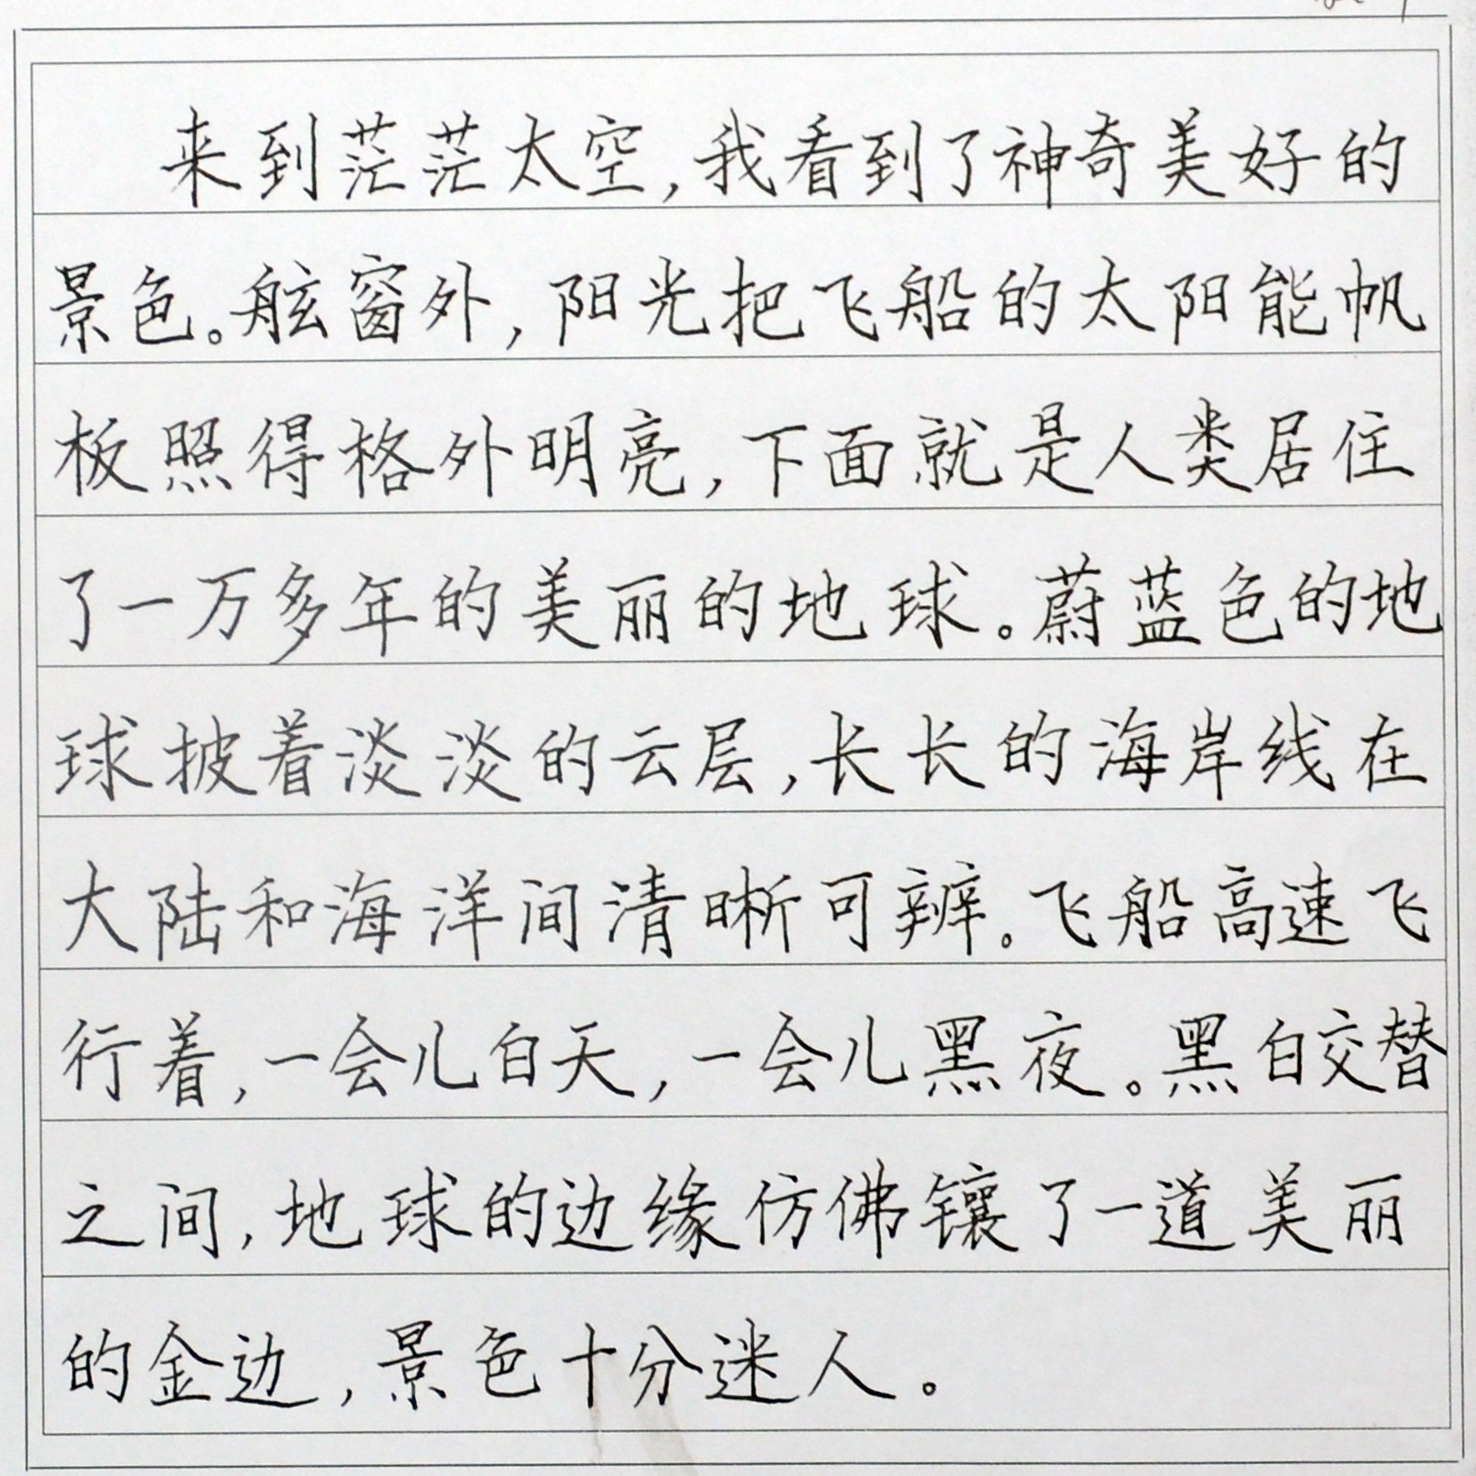 来到茫茫太空,我看到了神奇美好的
景色。舷窗外,阳光把飞船的太阳能帆
板照得格外明亮,下面就是人类居住
了一万多年的美丽的地球。蔚蓝色的地
球披着淡淡的云层,长长的海岸线在
大陆和海洋间清晰可辨。飞船高速飞
行着,一会儿白天,一会儿黑夜。黑白交替
之间,地球的边缘仿佛镶了一道美丽
的金边,景色十分迷人。